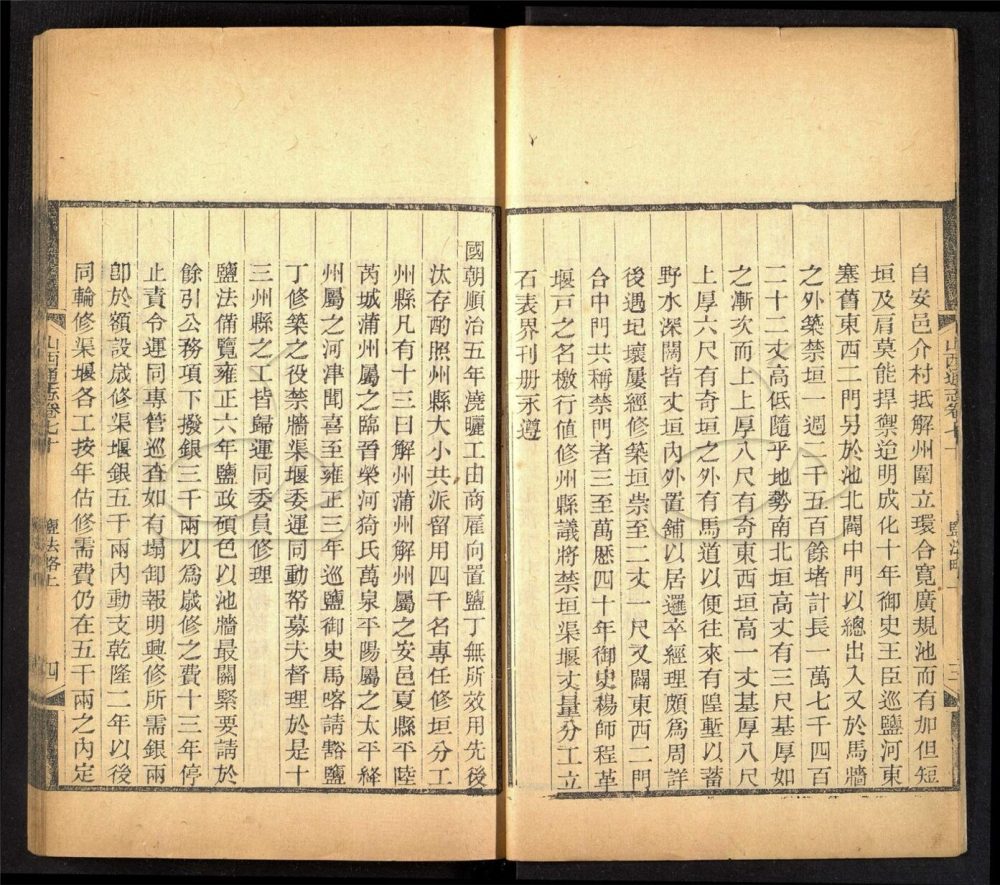 自安邑介村抵解州圍立環合寬廣規池而有加但短
垣及肩莫能捍禦迨明成化十年御史王臣巡鹽河東
塞舊東西二門另於池北闢中門以總出入又於馬牆
之外築禁垣一週二千五百餘堵計長一萬七千四百
二十二丈高低隨乎地勢南北垣高丈有三尺基厚如
之漸次而上上厚八尺有奇東西垣高一丈基厚八尺
上厚六尺有奇垣之外有馬道以便往來有隍塹以蓄
野水深闊皆丈垣內外置鋪以居邏卒經理頗為周詳
後遇圮壞屢經修築垣崇至二丈一尺又闢東西二門
合中門共稱禁門者三至萬厯四十年御史楊師程革
堰戸之名檄行值修州縣議將禁垣渠堰丈量分工立
石表界刊册永遵
國朝順治五年澆曬工由商雇向置鹽丁無所效用先後
汰存酌照州縣大小共派留用四千名專任修垣分工
州縣凡有十三曰解州蒲州解州屬之安邑夏縣平陸
芮城蒲州屬之臨晉榮河猗氏萬泉平陽屬之太平絳
州屬之河津聞喜至雍正三年巡鹽御史馬喀請豁鹽
丁修築之役禁牆渠堰委運同動帑募夫督理於是十
三州縣之工皆歸運同委員修理
鹽法備覽雍正六年鹽政碩色以池牆最關緊要請於
餘引公務項下撥銀三千兩以為歲修之費十三年停
止責令運同專管巡查如有塌卸報明興修所需銀兩
卽於額設歲修渠堰銀五千兩內動支乾隆二年以後
同輪修渠堰各工按年估修需費仍在五千兩之內定
山西通志卷七十
鹽法略上
三
山西通志卷七十
鹽法略上
四